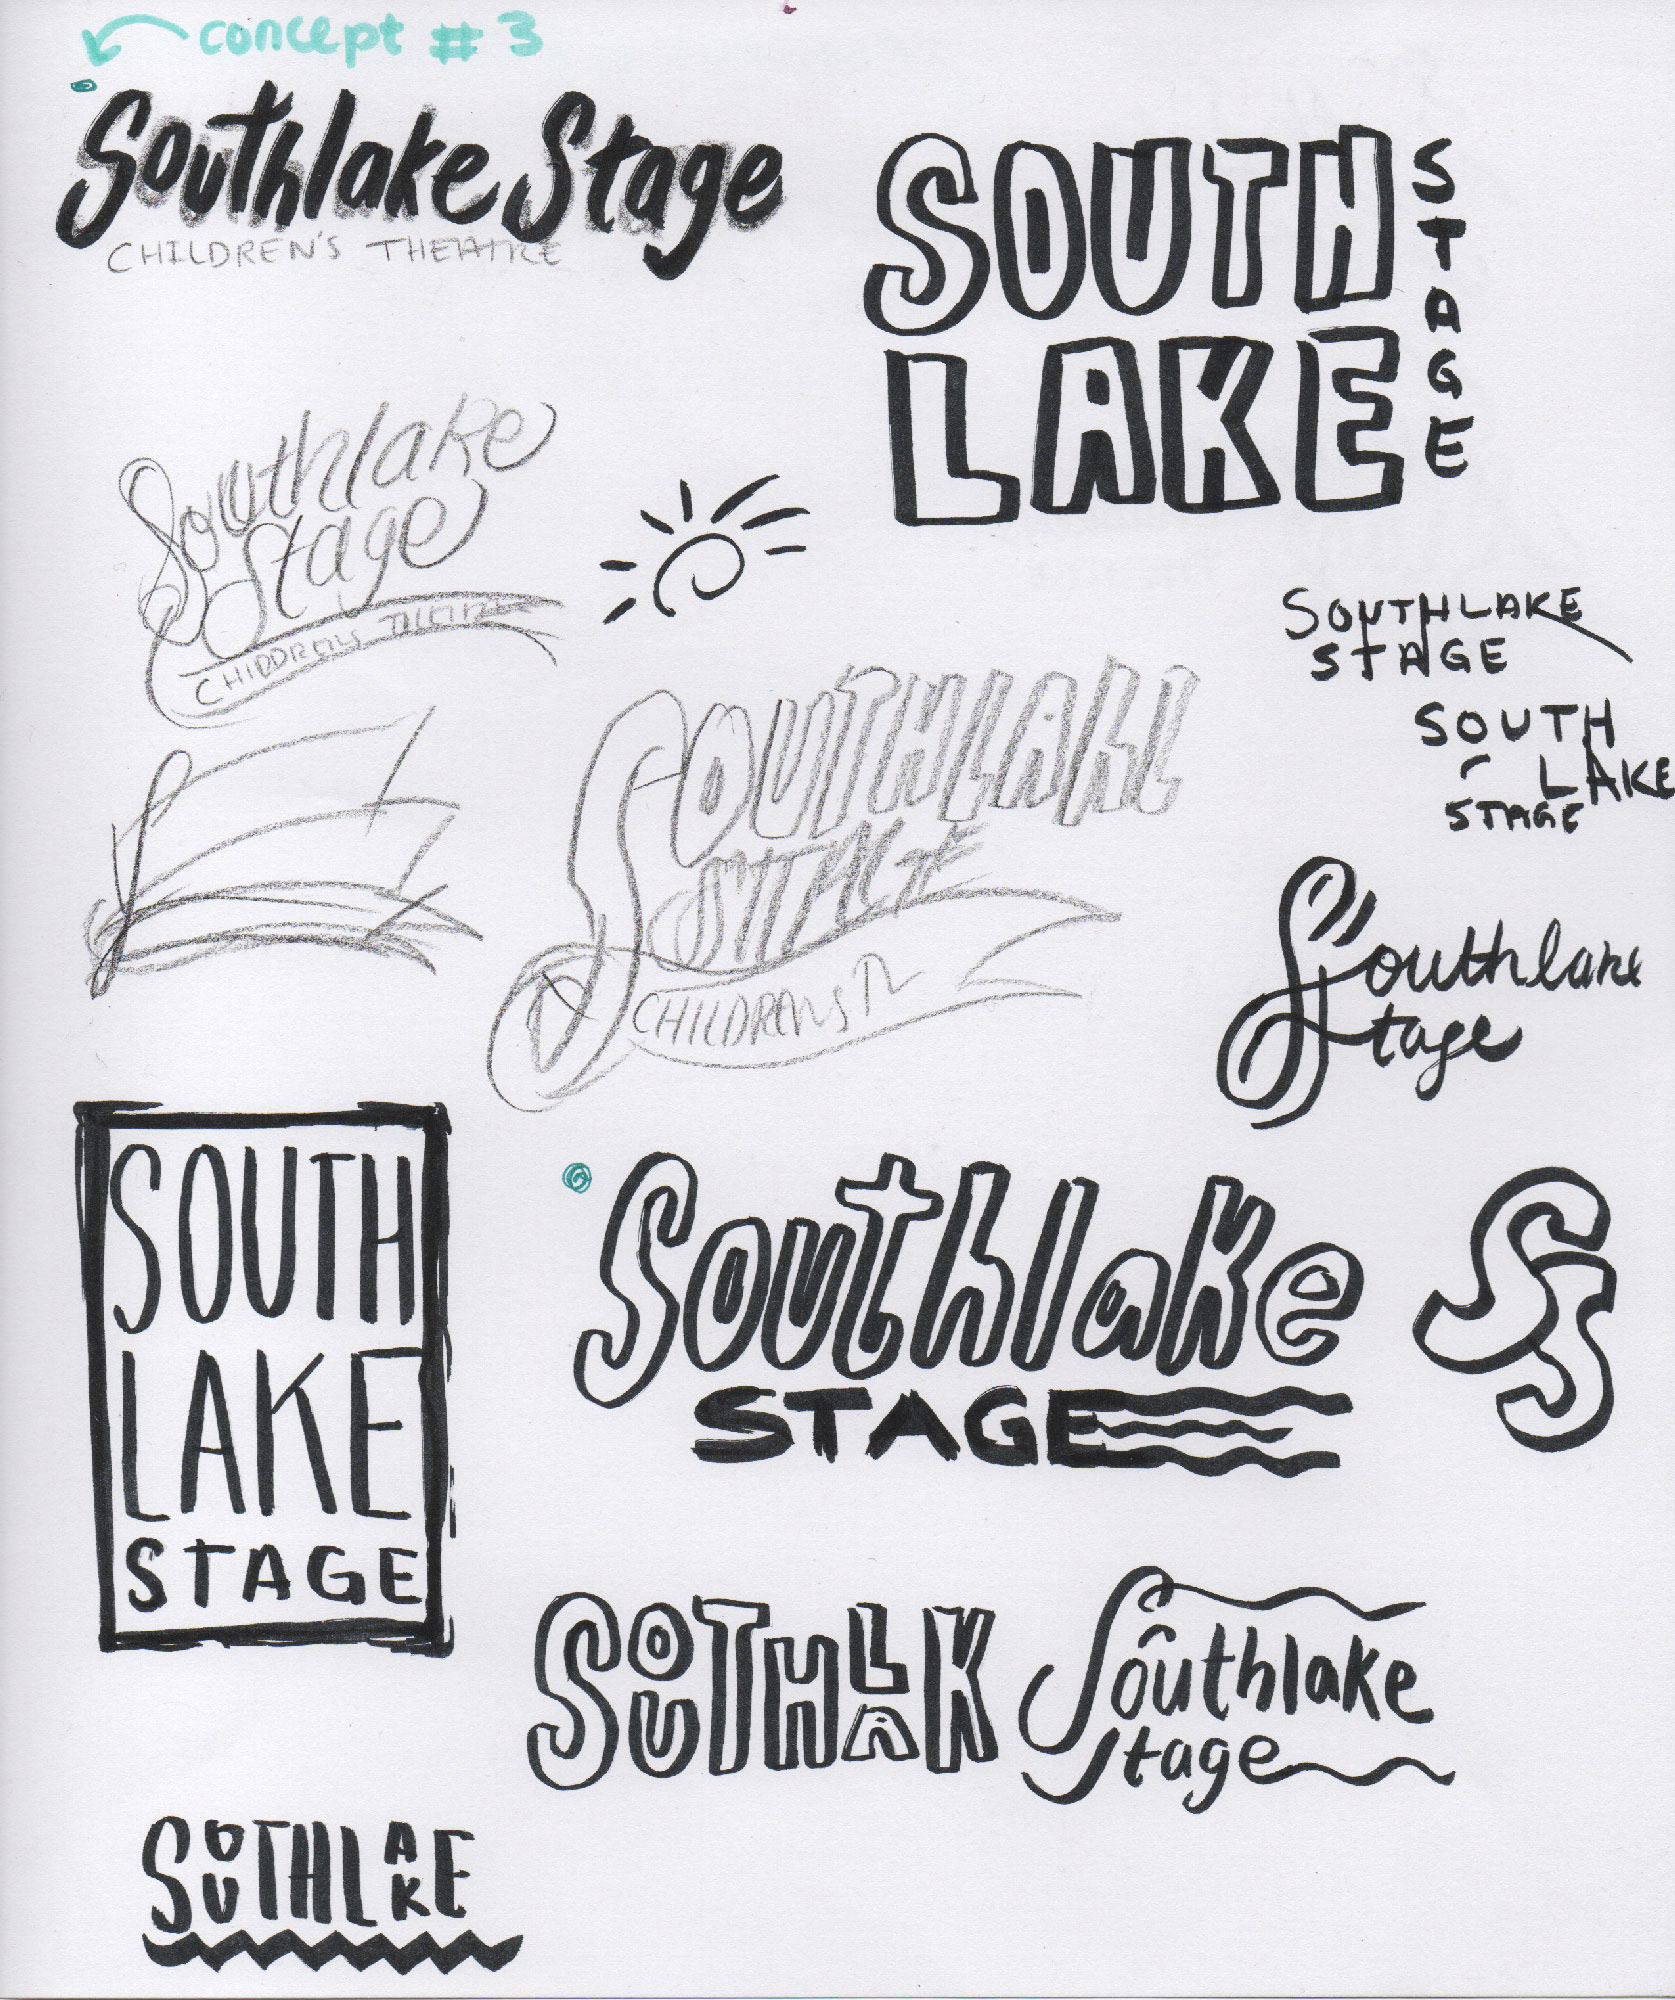 concept #3
Southlake Stage
CHILDREN'S THEATRE
SOUTH
LAKE
STAGE
Southlake
Stage
CHILDRENS
SOUTHLAKE
STAGE
SOUTH
LAKE
STAGE
SOUTHLAKE
STAGE
CHILDRENS
Southlake
Stage
SOUTH
LAKE
STAGE
Southlake
STAGE
SS
SOUTHLAK
Southlake
Stage
SOUTHLAKE